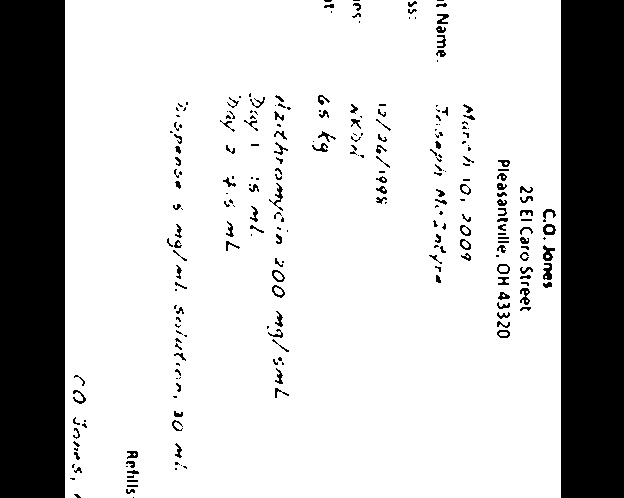 C.O. Jones
25 El Caro Street
Pleasantville, OH 43320
March 10, 2009
t Name. Joseph McIntyre
ss:
12/26/1998
es: NKDA
t: 65 kg
Azithromycin 200 mg/5mL
Day 1 15 mL
Day 2 7.5 mL
Dispense 5 mg/mL solution, 30 mL
Refills:
CO Jones,